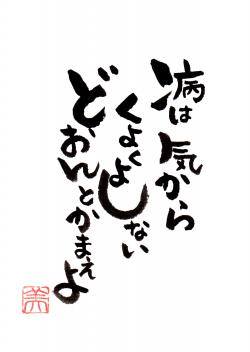 病は気から
くよくよしない
どおんとかまえよ
美